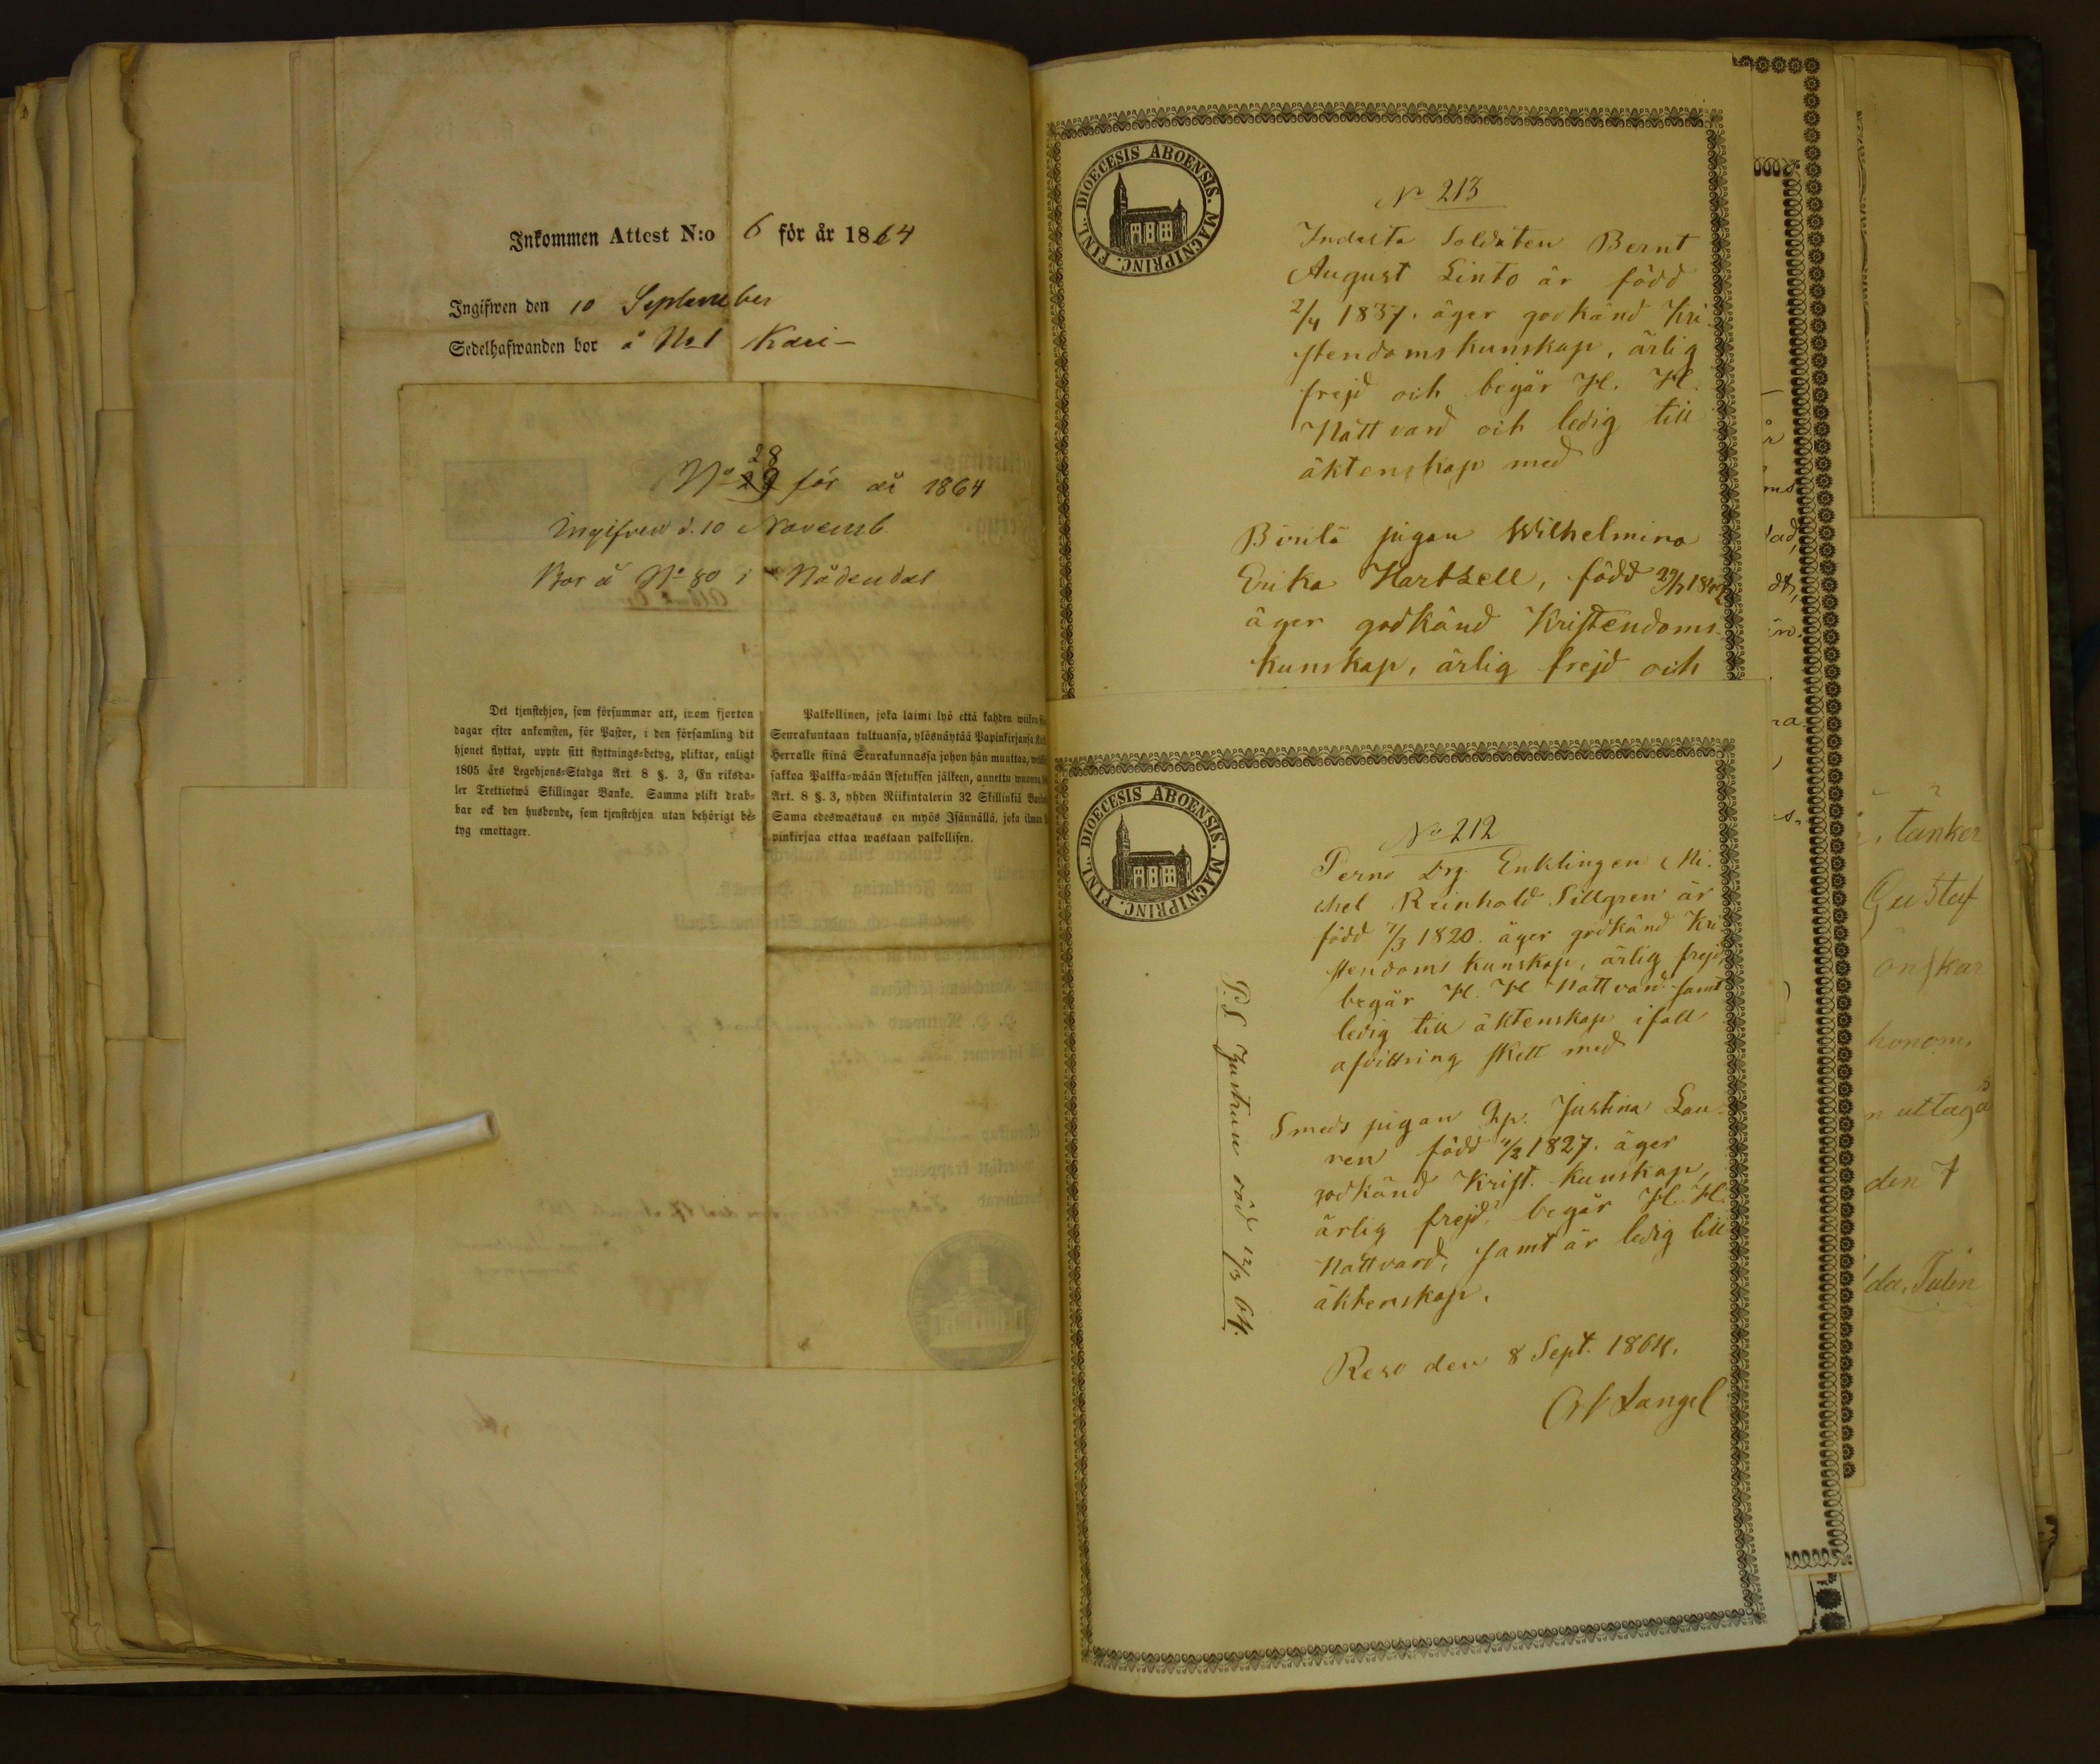 Inkommen Attest N:o 6 för år 1864
Ingifwen den 10 September
Sedelhafwanden bor å No 1 Kari-
28
No 29 för år 1864
Ingifven d. 10 Novemb.
Bor å No 80 i Nådendal
Det tjenstehjon, som försummar att, inom fjorton
dagar efter ankomsten, för Pastor, i den församling dit
hjonet flyttat, uppte sitt flyttnings-betyg, pliktar, enligt
1805 års Legohjons-Stadga Art. 8 §. 3, En riksda-
ler Trettiotwå Skillingar Banko. Samma plikt drab-
bar ock den husbonde, som tjenstehjon utan behörigt be-
tyg emottager.
Palkollinen, joka laimi lyö että kahden wiikon
Seurakuntaan tultuansa, ylösnäytää Papinkirjansa
Herralle siinä Seurakunnassa johon hän muuttaa,
sakkoa Palkka-wään Asetuksen jälkeen, annettu wuonna
Art. 8 §. 3, yhden Riikintalerin 32 Skillinkiä
Sama edeswastaus on myös Isännällä, joka ilman
pinkirjaa ottaa wastaan palkollisen.
FINL. DIOECESIS ABOENSIS. MAGNIPRINC.
No 213
Indelta Soldaten Bernt
August Linto är född
2/4 1837. äger godkänd Kri-
stendomskunskap, ärlig
frejd och begår H. H.
Nattvard och ledig till
äktenskap med
pigan Wilhelmina
Erika Hartzell, född
äger godkänd Kristendoms-
kunskap, ärlig frejd och
FINL. DIOECESIS ABOENSIS. MAGNIPRINC.
No 212
Perno Enklingen Mi-
chel Reinhold Sillgren är
född 7/3 1820. äger godkänd Kri-
stendoms kunskap, ärlig frejd,
begår H. H. Nattvard samt
ledig till äktenskap ifall
afvittring skett med
Smeds pigan Justina Lau-
ren född 1827. äger
godkänd Krist. kunskap,
ärlig frejd, begår H. H.
Nattvard, samt är ledig till
äktenskap.
Reso den 8 Sept. 1864.
Langel
P.S. 12/3 64.
tänker
Gustaf
önskar
honom,
uttaga
den 7